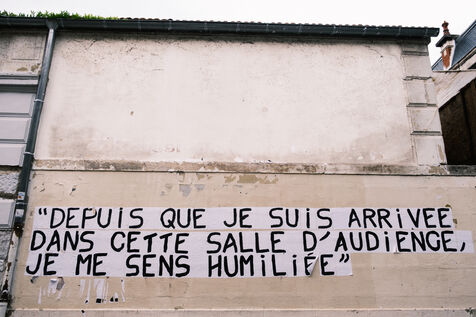 "DEPUIS QUE JE SUIS ARRIVÉE
DANS CETTE SALLE D'AUDIENCE,
JE ME SENS HUMILIÉE"